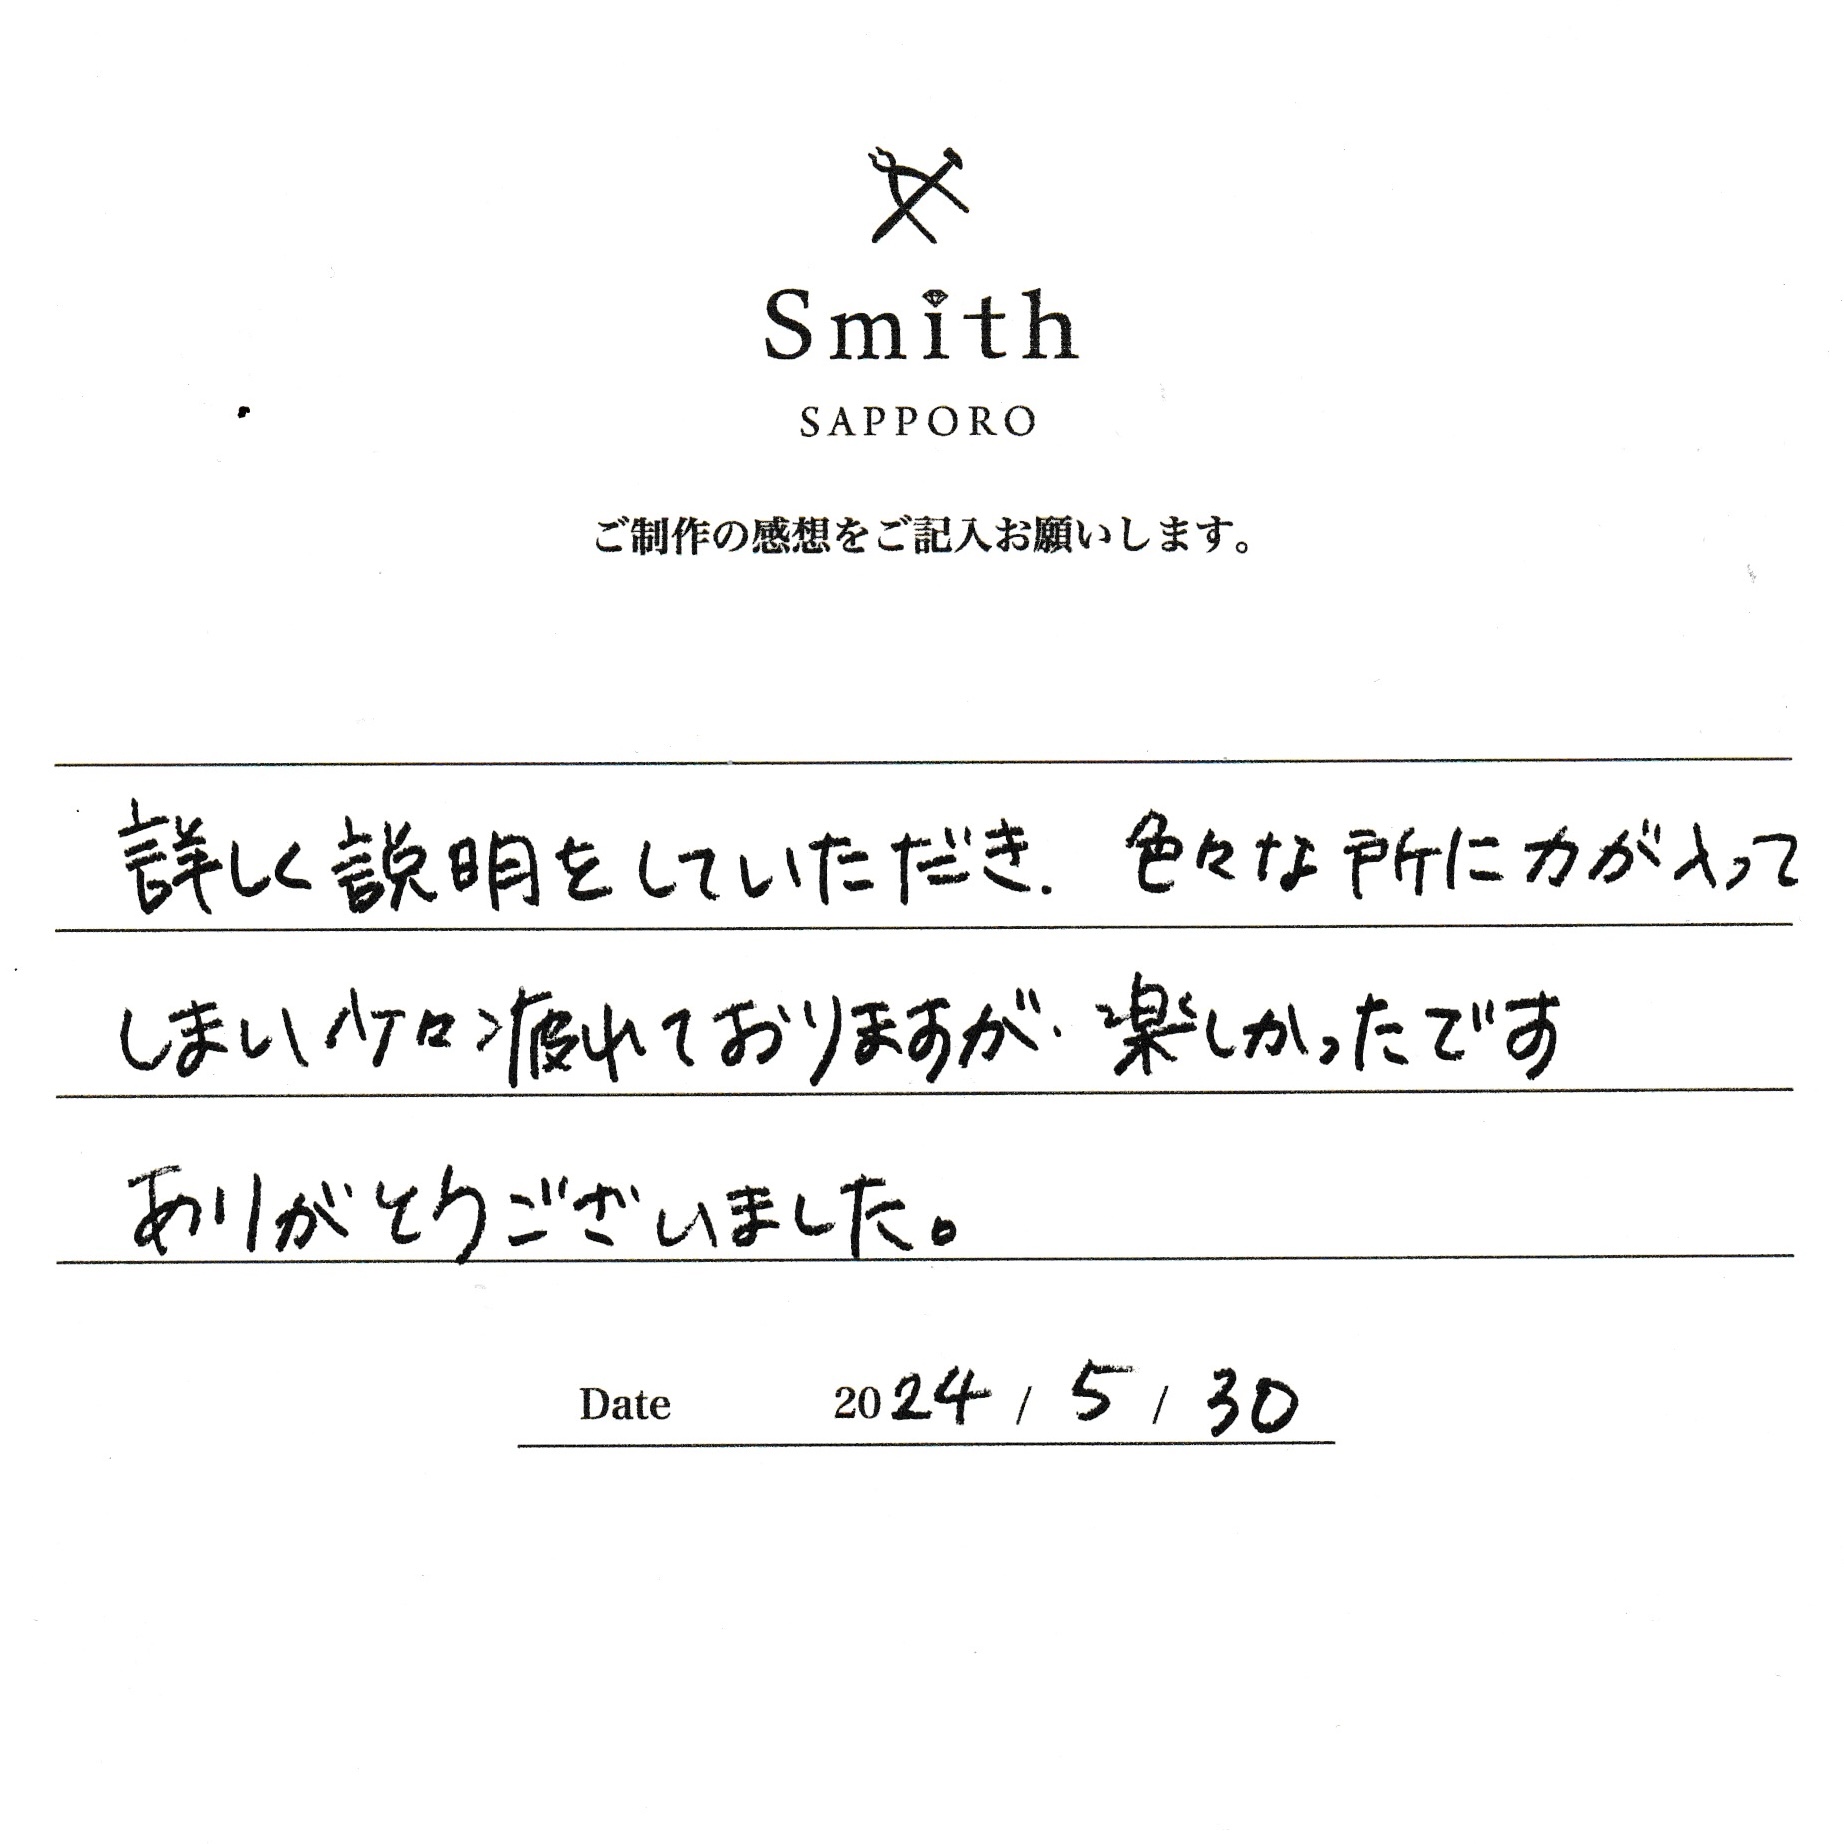 Smith
SAPPORO
ご制作の感想をご記入お願いします。
詳しく説明をしていただき、色々な所に力が入って
しまい 疲れておりますが、楽しかったです
ありがとうございました。
Date 2024 / 5 / 30